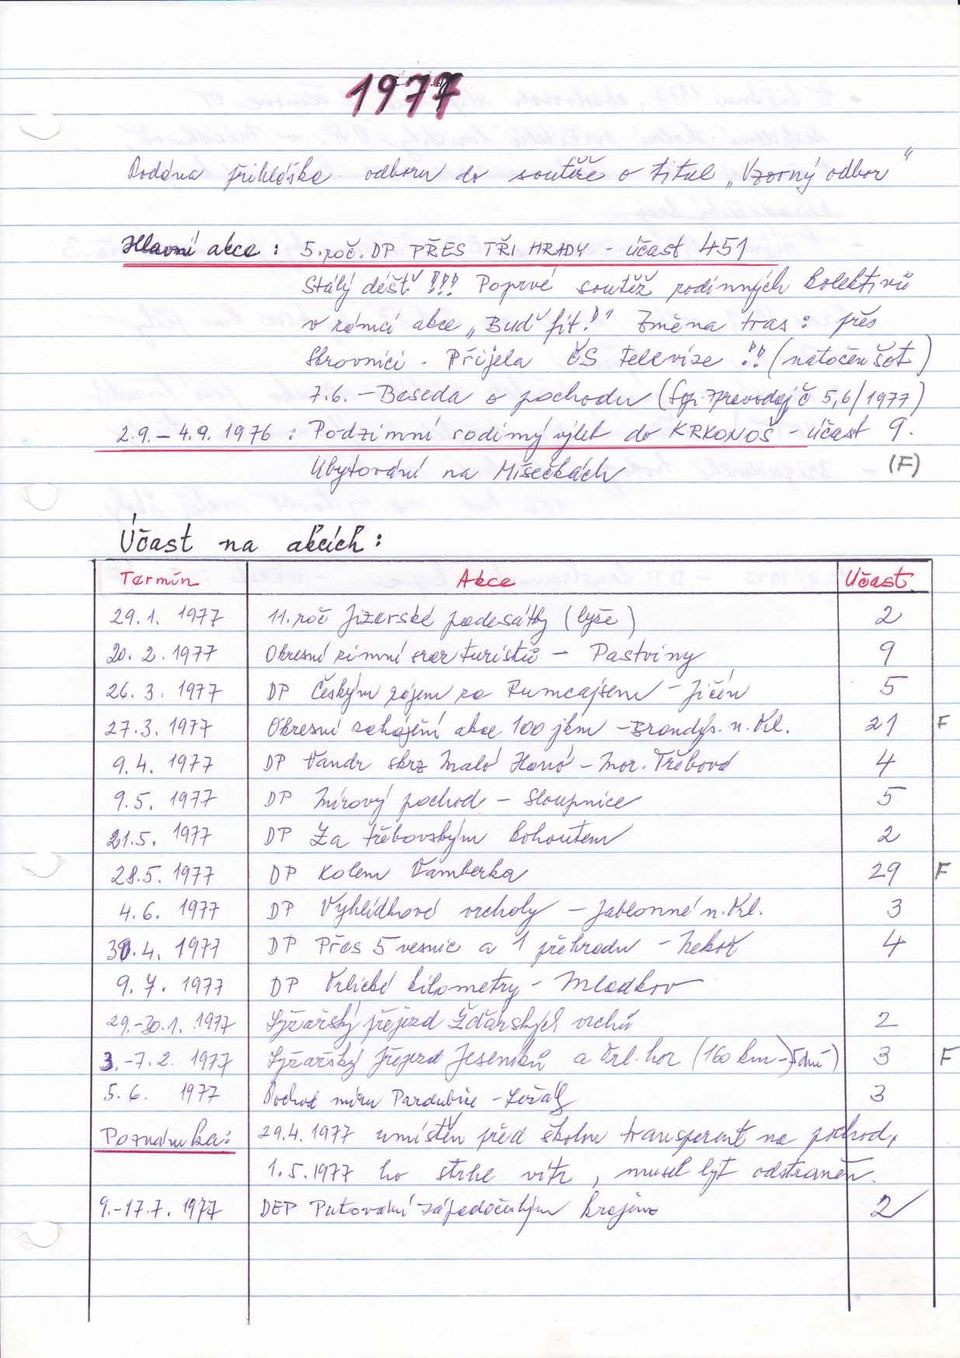 1977
Podána přihláška odboru do soutěže o titul „Vzorný odbor"
Hlavní akce : 5. roč. DP PŘES TŘI HRADY - účast 451
Stálý déšť !!! Poprvé soutěž rodinných kolektivů
v rámci akce „Buď fit!" Změna tras : přes
Skrovnici - Přijela ČS televize !!! (natočen šot)
7.6. - Beseda o pochodu (Zpravodaj č 5,6/1977)
2.9. - 4.9. 1976 : Podzimní rodinný výlet do KRKONOŠ - účast 9.
Ubytování na Mísečkách (F)
Účast na akcích :
Termín Akce Účast
29. 1. 1977 11. roč Jizerské padesátky (lyže) 2
20. 2. 1977 Okresní zimní sraz turistů - Pastviny 9
26. 3. 1977 DP Českým rájem za Rumcajsem - Jičín 5
27. 3. 1977 Okresní zahájení akce 100 jkm - Brandýs. n. Orl. 21 F
9. 4. 1977 DP Vandr skrz Malou Hanou - Mor. Třebová 4
9. 5. 1977 DP Mírový pochod - Sloupnice 5
21. 5. 1977 DP Za třebovským kohoutem 2
28. 5. 1977 DP Kolem Vamberka 29 F
4. 6. 1977 DP Vyhlídkové vrcholy - Jablonné n. Orl. 3
30. 4. 1977 DP Přes 5 vesnic a 1 přehradu - Hekof 4
9. 7. 1977 DP Orlické kilometry - Mladkov
29.-30. 1. 1977 Lyžařský přejezd Žďárských vrchů 2
3. - 7. 2. 1977 Lyžařský přejezd Jeseníků a Orl. hor (160 km - 5 dnů) 3 F
5. 6. 1977 Pochod míru Pardubice - Ležáky 3
Poznámka: 29. 4. 1977 umístěn před školou transparent na pochod,
1. 5. 1977 ho strhl vítr, musel být odstraněn.
9. - 17. 7. 1977 DEP Putování západočeským krajem 2